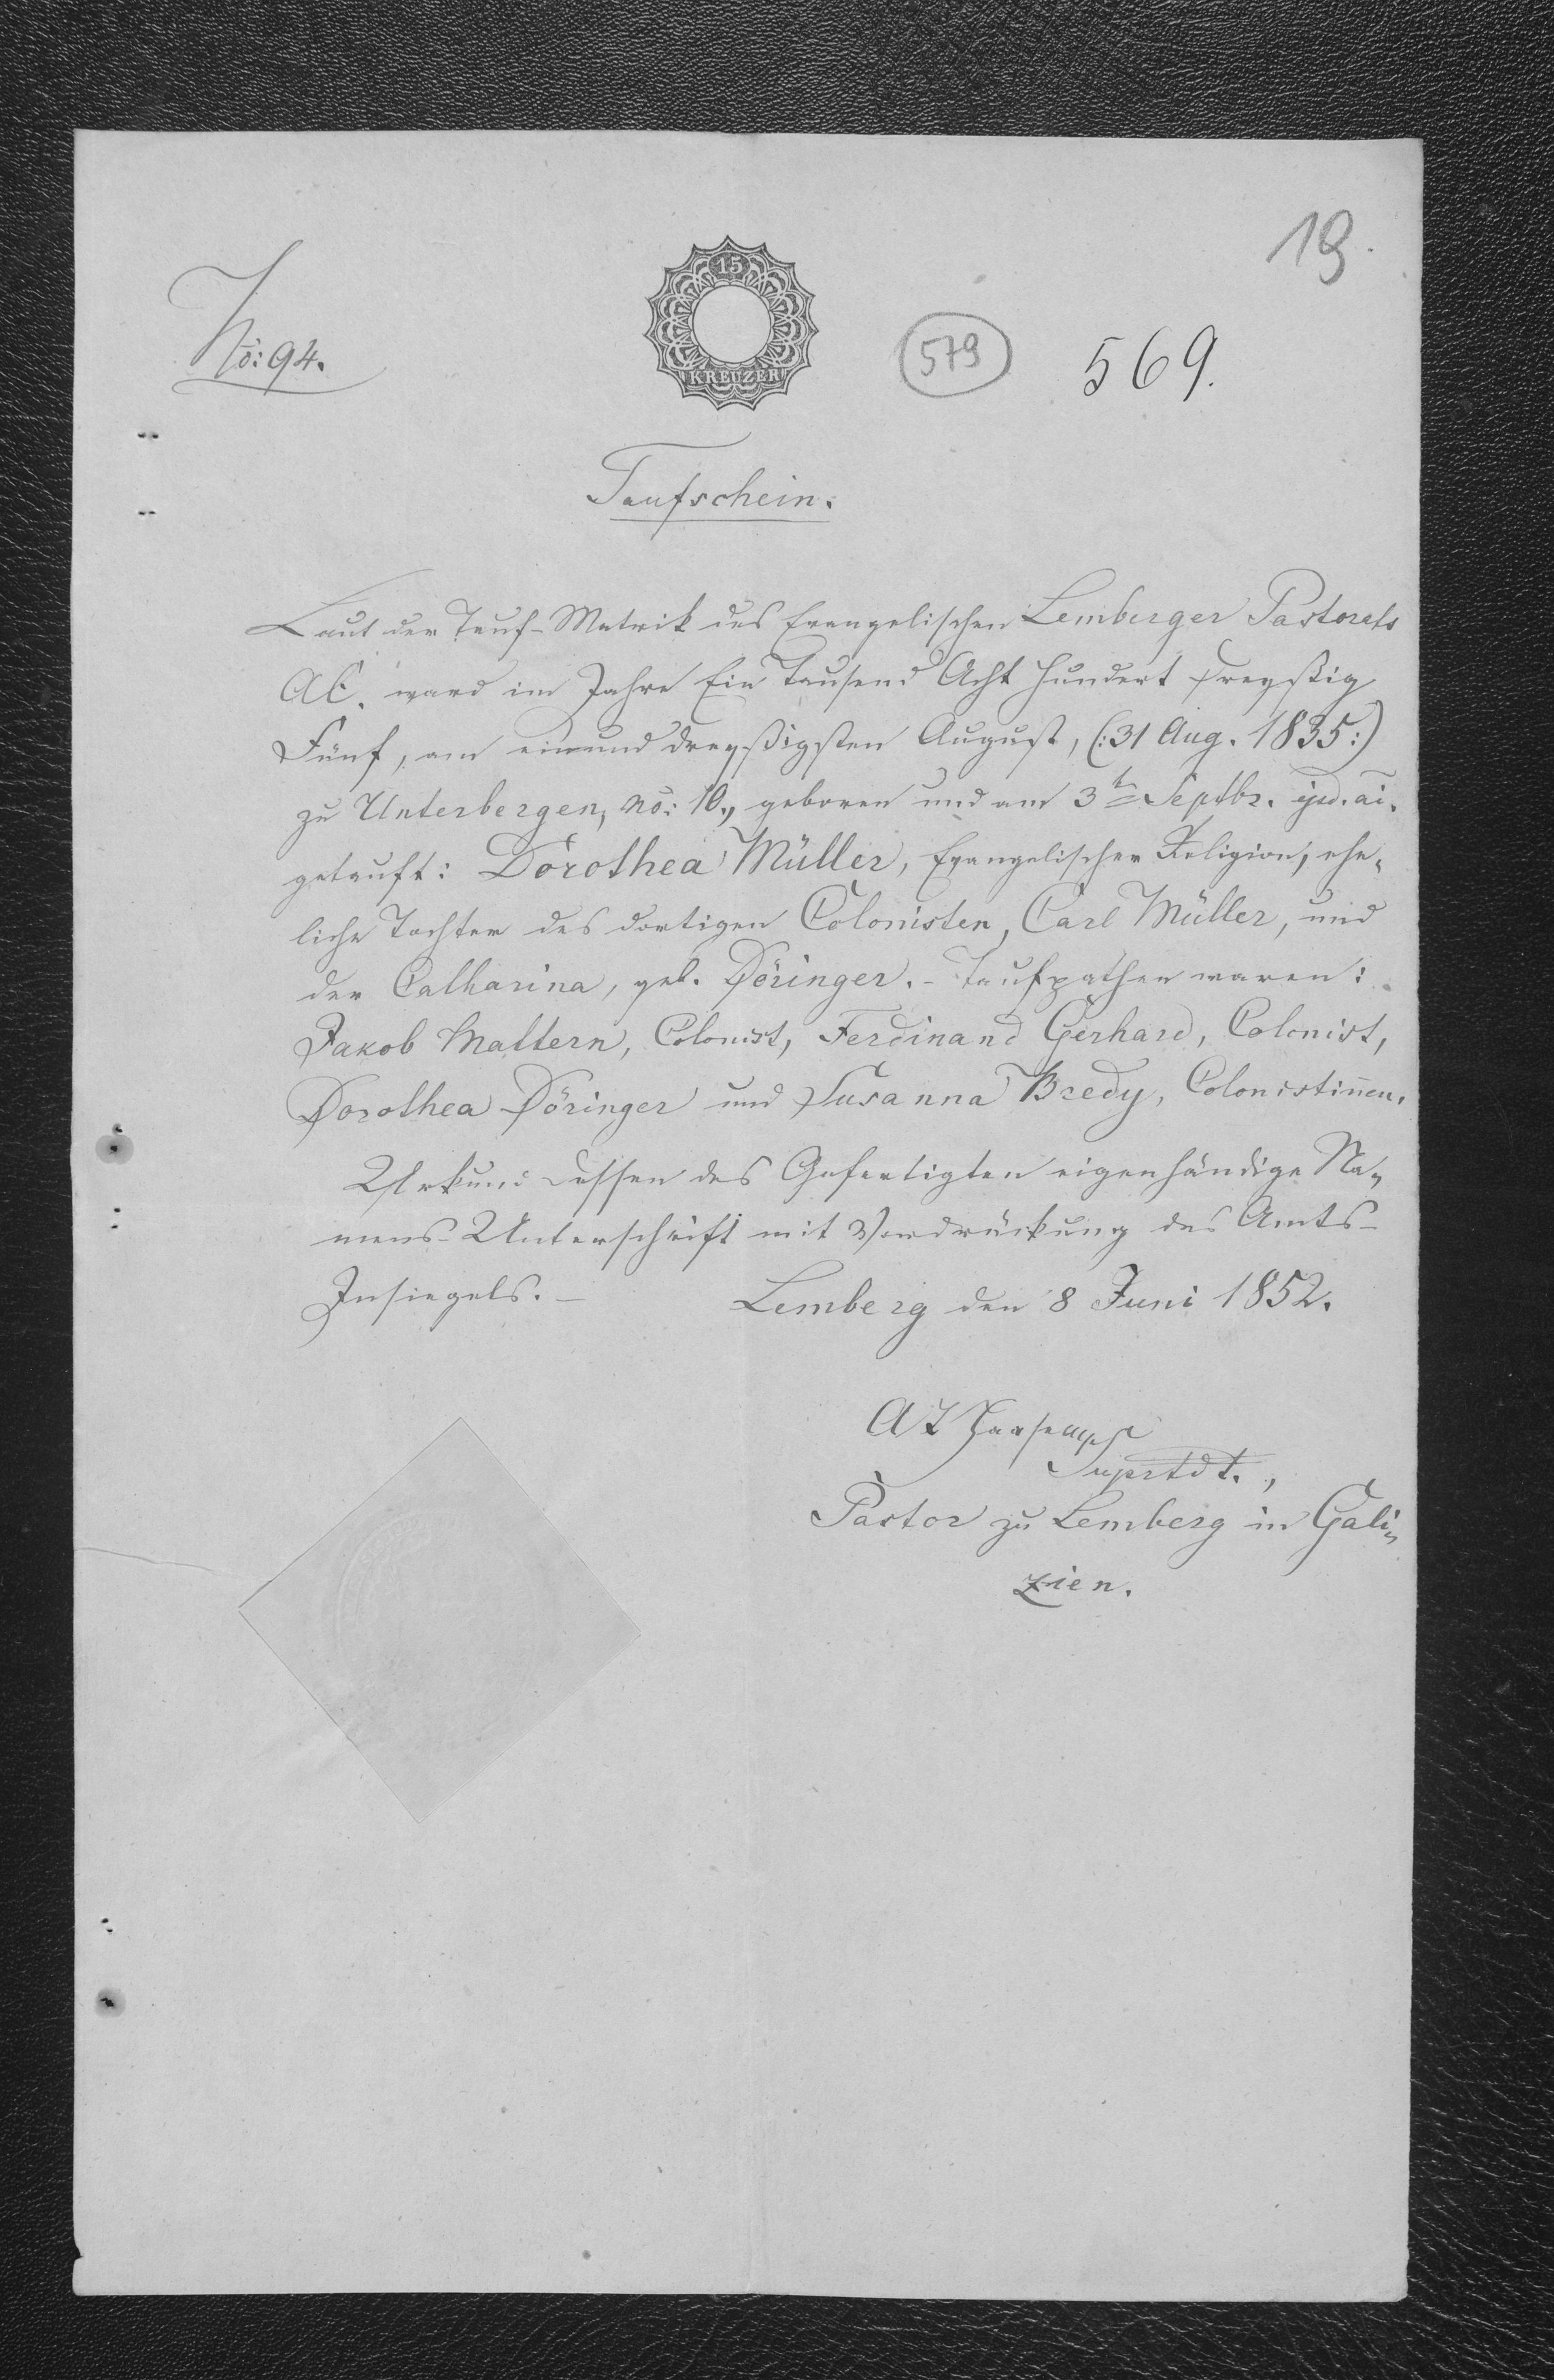 19.
15
KREUZER
No: 94.
579
569.
Taufschein.
Laut der Tauf-Matrik des Evangelischen Lemberger Pastorats
AC. ward im Jahre Ein Tausend Acht Hundert Dreyßig
Fünf, am einund dreyßigsten August, (:31 Aug. 1835:)
zu Unterbergen, No: 10., geboren und am 3t Septbr. ejsd. ai.
getauft: Dorothea Müller, Evangelischer Religion, ehe„
liche Tochter des dortigen Colonisten, Carl Müller, und
der Catharina, geb. Döringer. - Taufpathen waren:
Jakob Mattern, Colonist, Ferdinand Gerhard, Colonist,
Dorothea Döringer und Susanna Bredy, Colonistiñen.
Urkund dessen des Gefertigten eigenhändige Na„
mens-Unterschrift mit Vordrückung des Amts-
Insiegels. -
Lemberg den 8 Juni 1852.
Suprtdt.,
Pastor zu Lemberg in Gali„
zien.